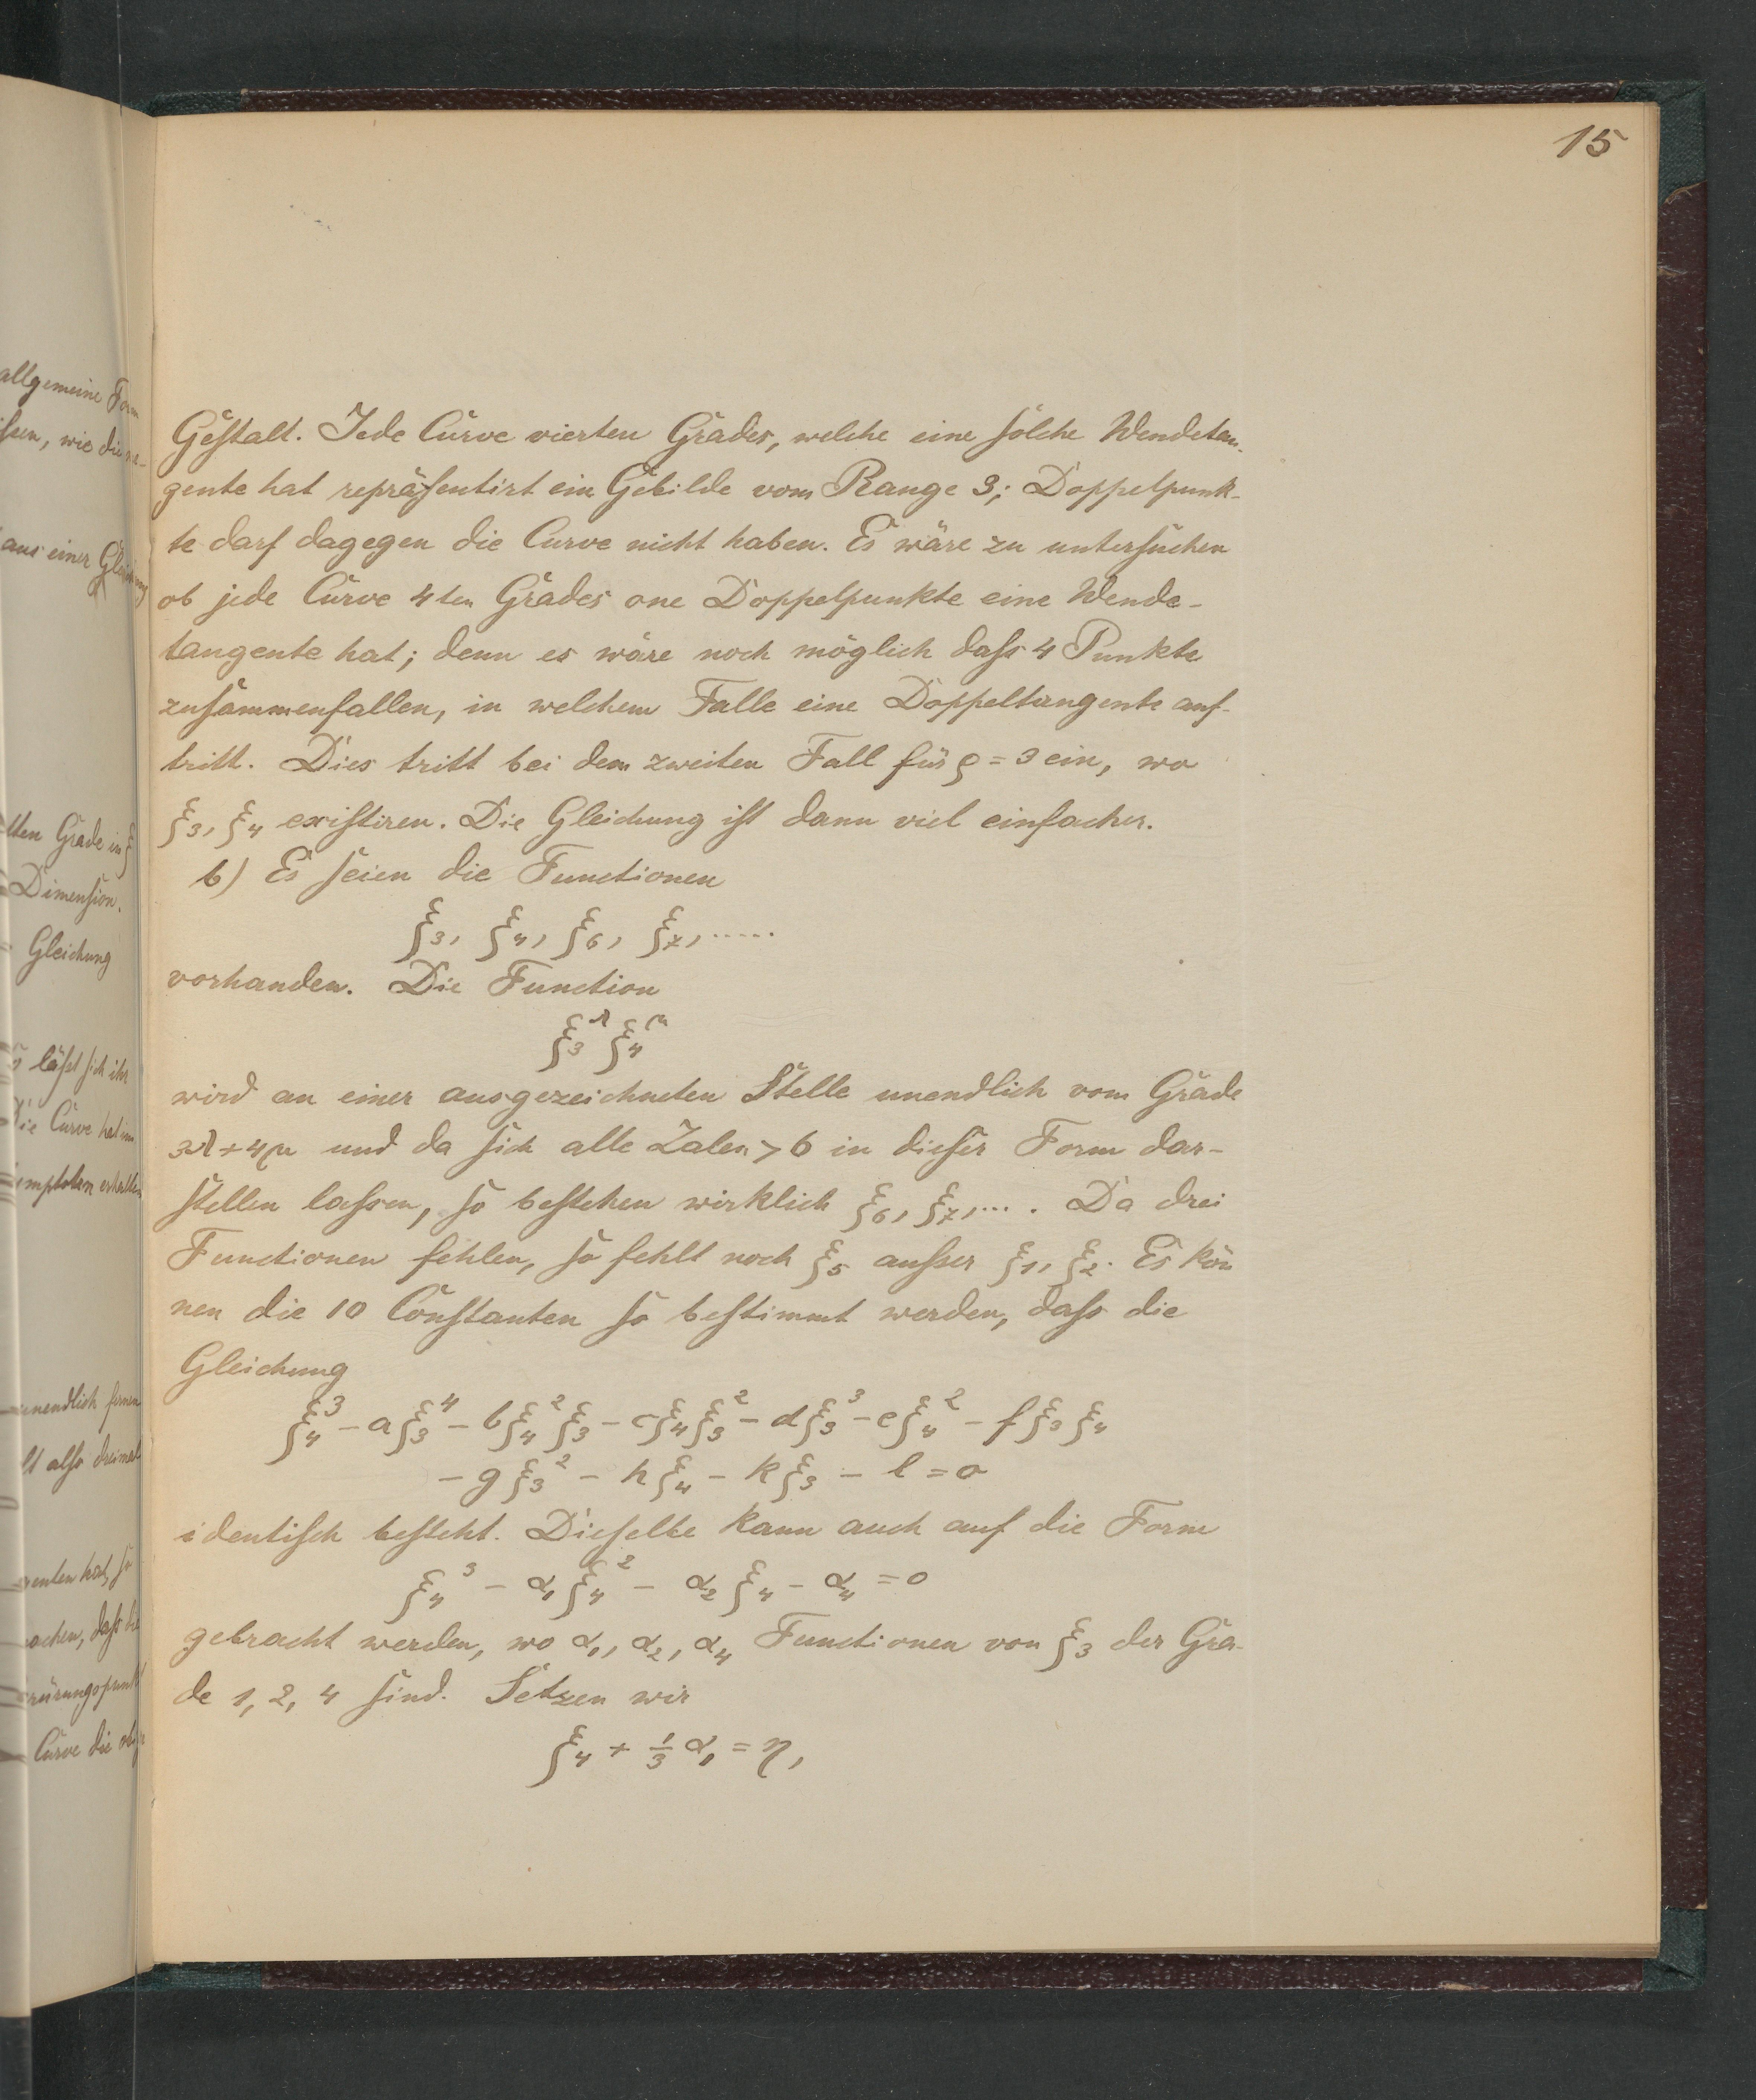 15
allgemeine Form
aus einer Gleichung
ten Grade in ξ
Dimension.
Gleichung
läſst sich ihr
Die Curve hat im
unendlich fernen
also dreimal
Curve die
Geſtalt. Jede Curve vierten Grades, welche eine ſolche Wendetan-
gente hat repräſentirt ein Gebilde vom Range 3; Doppelpunk-
te darf dagegen die Curve nicht haben. Es wäre zu unterſuchen
ob jede Curve 4ten Grades one Doppelpunkte eine Wende-
tangente hat; denn es wäre noch möglich daſs 4 Punkte
zuſammenfallen, in welchem Falle eine Doppeltangente auf-
tritt. Dies tritt bei dem zweiten Fall für ρ = 3 ein, wo
ξ₃, ξ₄ exiſtiren. Die Gleichung iſt dann viel einfacher.
b) Es ſeien die Functionen
ξ₃, ξ₄, ξ₆, ξ₇, .....
vorhanden. Die Function
ξ₃^λ ξ₄^μ
wird an einer ausgezeichneten Stelle unendlich vom Grade
3λ+4μ und da ſich alle Zalen > 6 in dieſer Form dar-
ſtellen laſsen, ſo beſtehen wirklich ξ₆, ξ₇, ... . Da drei
Functionen fehlen, ſo fehlt noch ξ₅ auſser ξ₁, ξ₂. Es kön
nen die 10 Conſtanten ſo beſtimmt werden, daſs die
Gleichung
ξ₄³ - aξ₃⁴ - bξ₄²ξ₃ - cξ₄ξ₃² - dξ₃³ - eξ₄² - fξ₃ξ₄
- gξ₃² - hξ₄ - kξ₃ - l = 0
identiſch beſteht. Dieſelbe kann auch auf die Form
ξ₄³ - α₁ξ₄² - α₂ξ₄ - α₄ = 0
gebracht werden, wo α₁, α₂, α₄ Functionen von ξ₃ der Gra-
de 1, 2, 4 ſind. Setzen wir
ξ₄ + ⅓ α₁ = η,